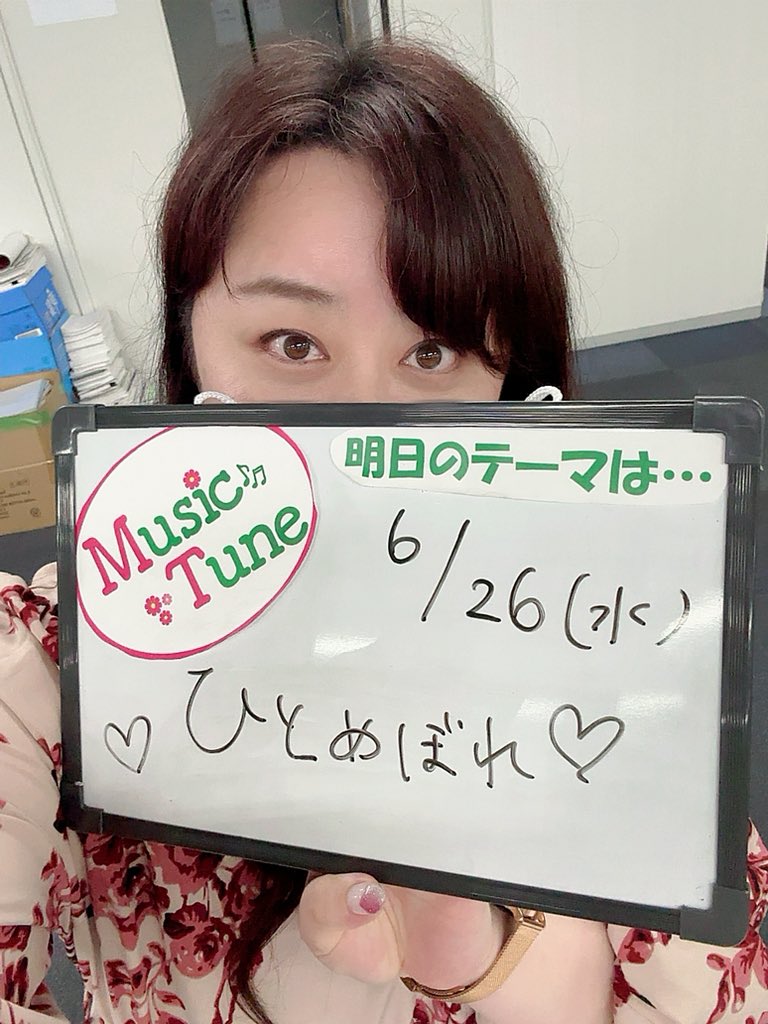 Music
Tune
明日のテーマは…
6/26(水)
♡ ひとめぼれ ♡